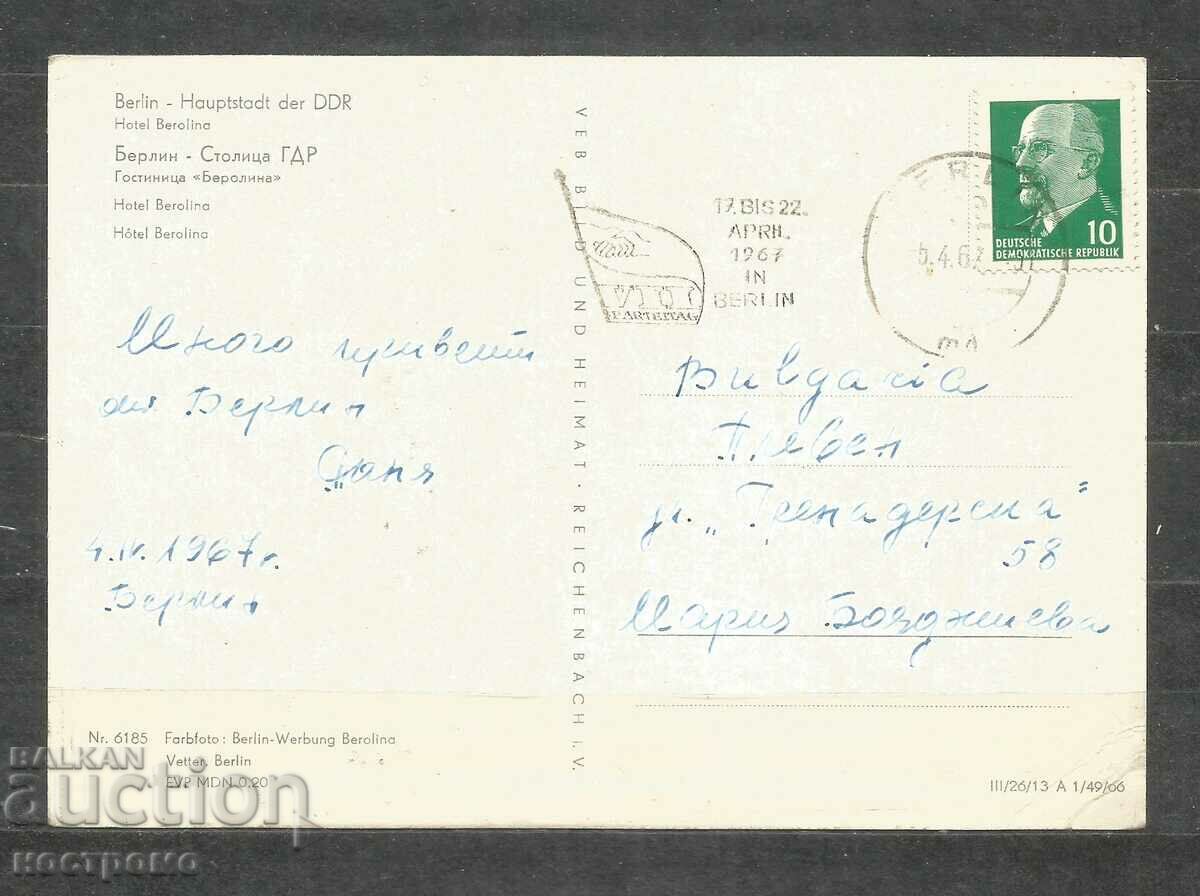 Berlin - Hauptstadt der DDR
Hotel Berolina
Берлин - Столица ГДР
Гостиница «Беролина»
Hotel Berolina
Hôtel Berolina
Много привети
от Берлин
Ваня
4.IV.1967 г.
Берлин
Nr. 6185 Farbfoto: Berlin-Werbung Berolina
Vetter, Berlin
EVP MDN 0.20
VEB BILD UND HEIMAT · REICHENBACH i. V.
VII
PARTEITAG
17. BIS 22.
APRIL
1967
IN
BERLIN
5.4.67
10
DEUTSCHE
DEMOKRATISCHE REPUBLIK
Плевен
ул. „Гренадерска"
58
Мария Бояджиева
III/26/13 A 1/49/66
BALKAN
auction
костромо